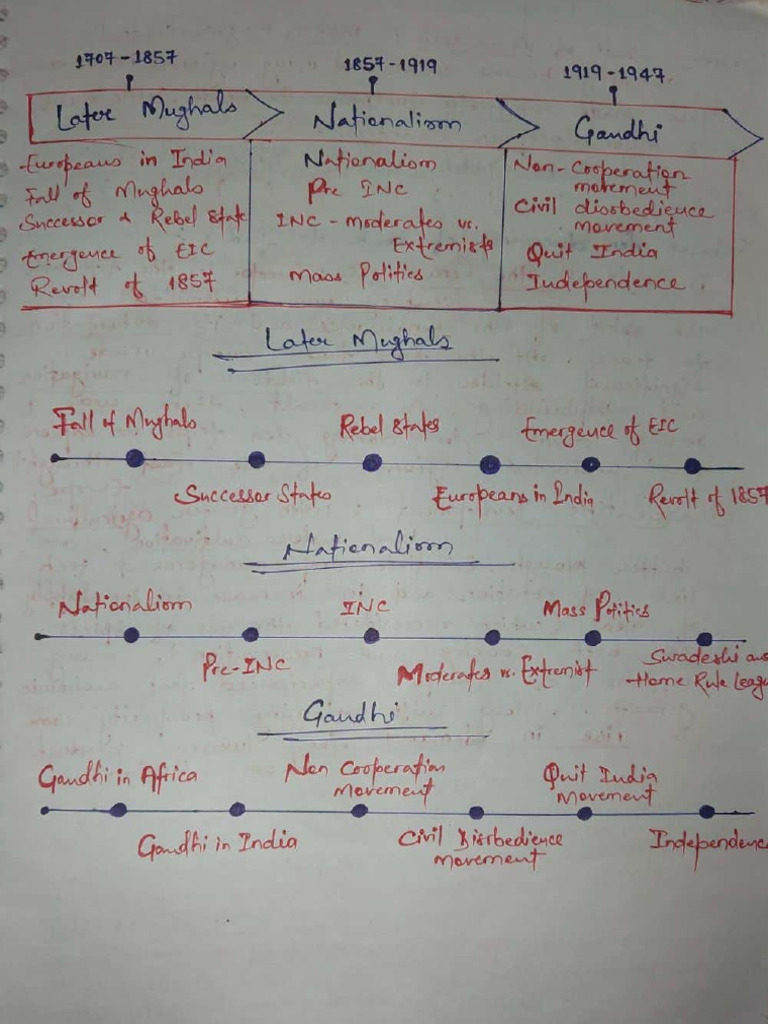 1707-1857
1857-1919
1919-1947
Later Mughals
Nationalism
Gandhi
Europeans in India
Fall of Mughals
Successor & Rebel State
Emergence of EIC
Revolt of 1857
Nationalism
Pre INC
INC - moderates vs.
Extremists
Mass Politics
Non-Cooperation
movement
Civil disobedience
movement
Quit India
Independence
Later Mughals
Fall of Mughals
Rebel States
Emergence of EIC
Successor States
Europeans in India
Revolt of 1857
Nationalism
Nationalism
INC
Mass Politics
Pre-INC
Moderates vs. Extremist
Swadeshi and
Home Rule Leag
Gandhi
Gandhi in Africa
Non Cooperation
movement
Quit India
Movement
Gandhi in India
Civil Disobedience
movement
Independenc